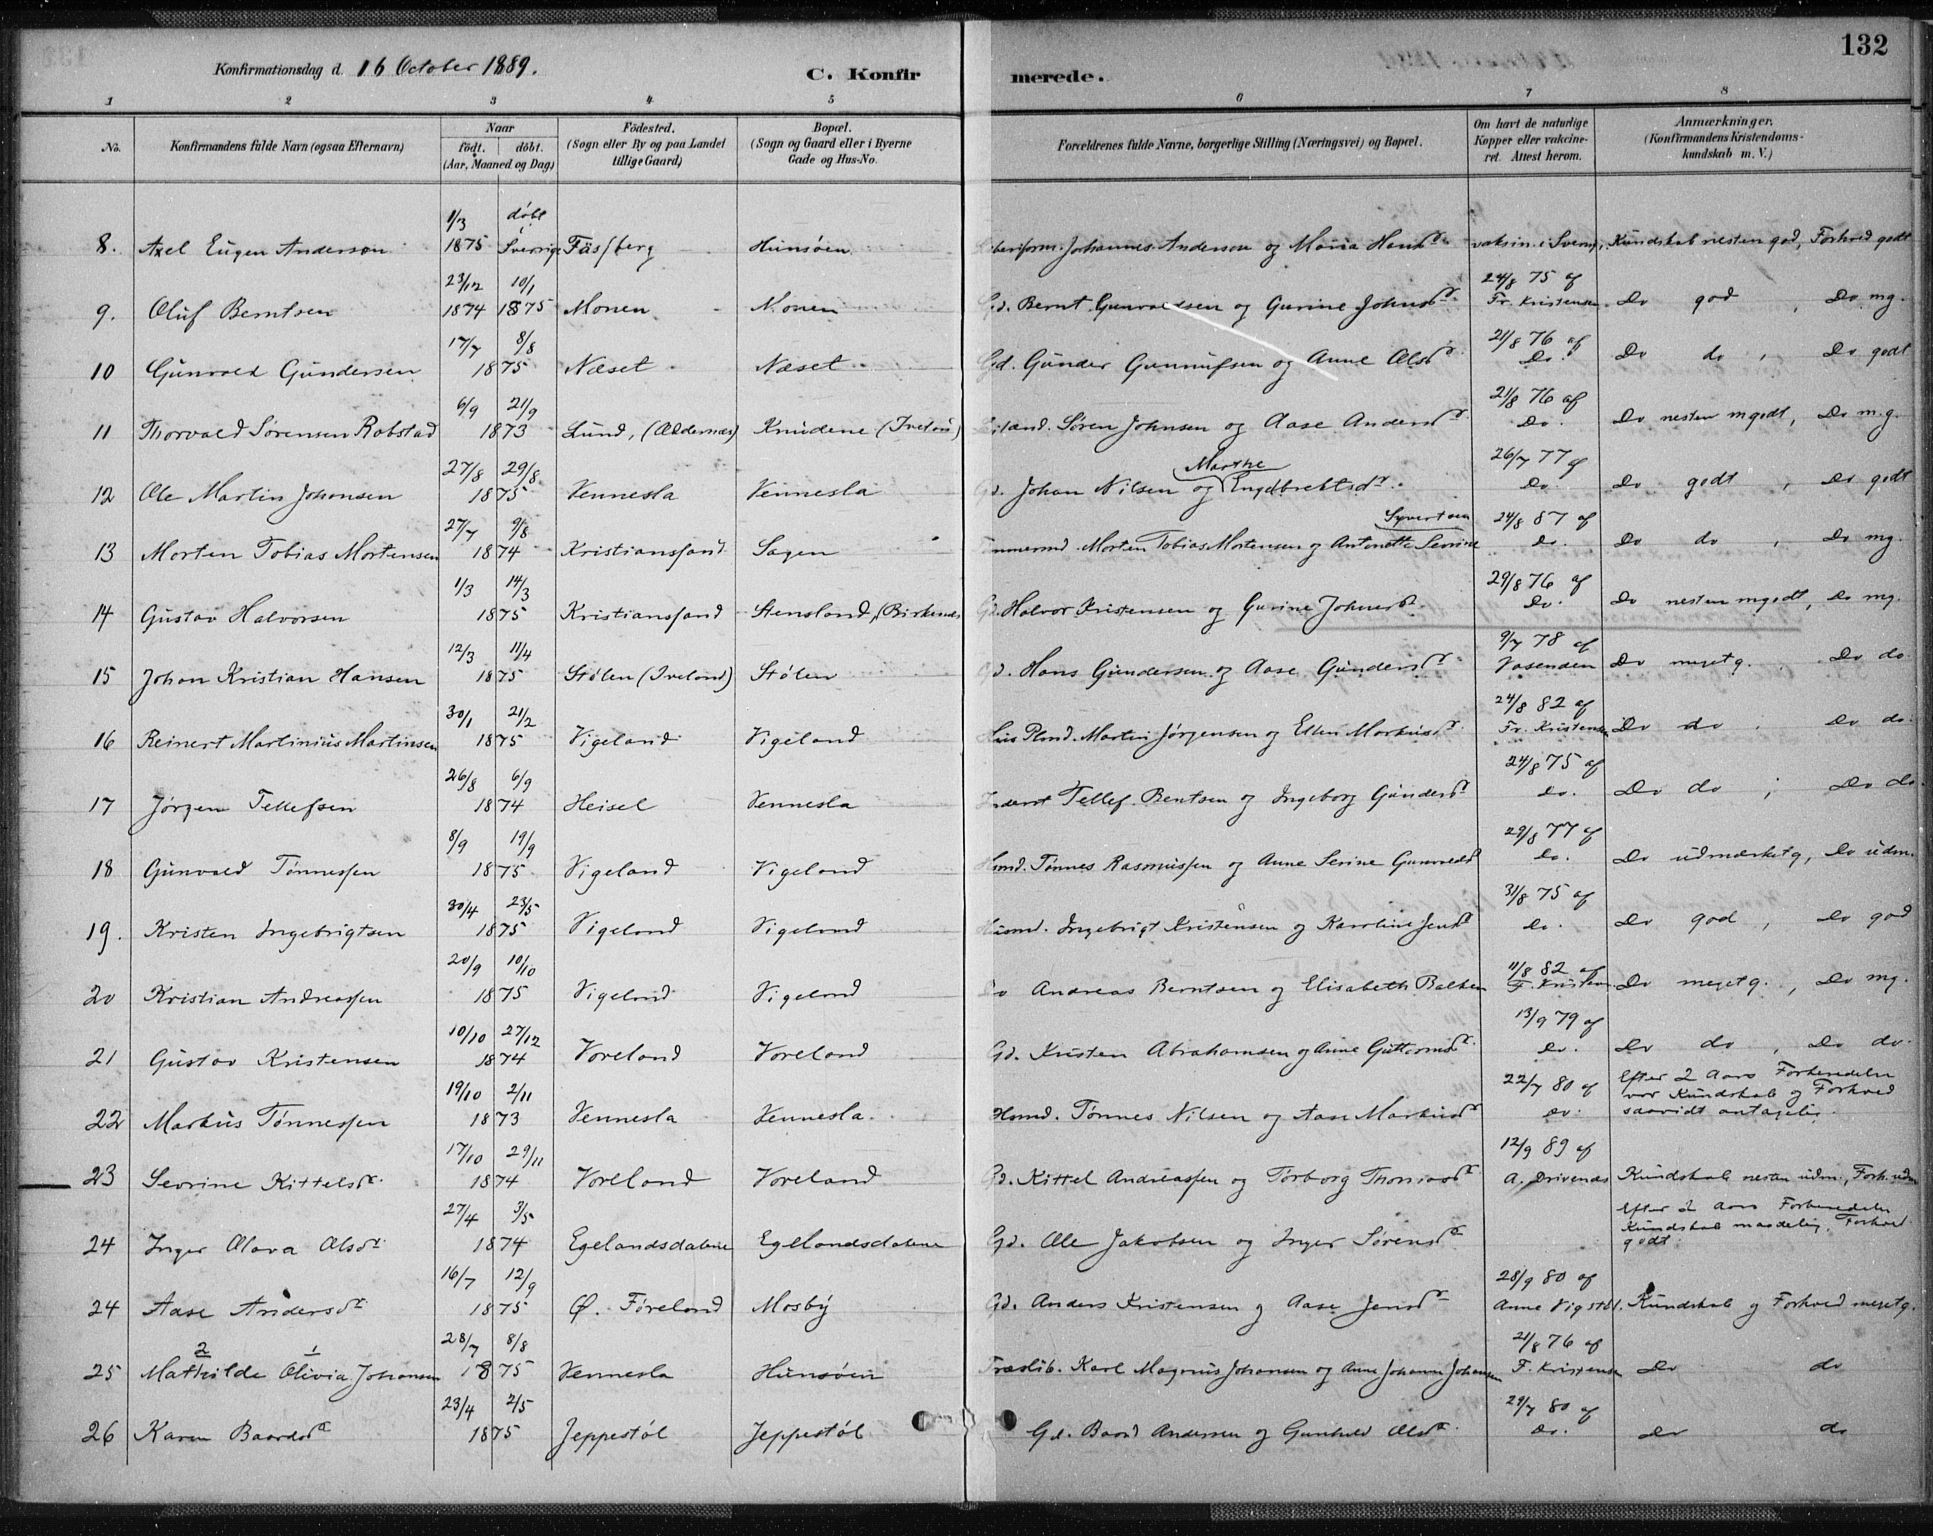 132
Konfirmationsdag d. 16 October 1889.
C. Konfirmerede.
1 2 3 4 5 6 7 8
No.
Konfirmandens fulde Navn (ogsaa Efternavn)
Naar
født. døbt.
(Aar, Maaned og Dag)
Fødested.
(Sogn eller By og paa Landet
tillige Gaard)
Bopæl.
(Sogn og Gaard eller i Byerne
Gade og Hus-No.
Forældrenes fulde Navne, borgerlige Stilling (Næringsvei) og Bopæl.
Om havt de naturlige
Kopper eller vakcine-
ret. Attest herom.
Anmærkninger.
(Konfirmandens Kristendoms-
kundskab m. V.)
1/3 døbt i
8. Axel Eugen Anderson 1875 Sverrige Fässberg Hunsøen Johannes Anderson og Maria Hansdr vaksin. i Sverrig, Kundskab nesten god, Forhold godt
23/12 10/1 24/8 75 af
9. Oluf Berntsen 1874 1875 Monen Monen Gd. Bernt Gunvaldsen og Gurine Johnsdr Fr. Kristensen Do god, Do mg.
17/7 8/8 21/8 76 af
10 Gunvald Gundersen 1875 Næset Næset Gd. Gunder Gunnufsen og Anne Olsdr Do. Do do, Do godt
6/9 21/9 21/8 76 af
11 Thorvald Sørensen Robstad 1873 Lund, (Oddernæs) Knudene (Iveland) Søren Johnsen og Aase Andersdr. Do. Do nesten mgodt, Do m.g.
27/8 29/8 Marthe 26/7 77 af
12 Ole Martin Johansen 1875 Vennesla Vennesla Gd. Johan Nilsen og Engelbrektsdr. Do. Do godt, Do godt
27/7 9/8 Syvertsen 24/8 87 af
13 Morten Tobias Mortensen 1874 Kristianssand Sagen Tømmermd. Morten Tobias Mortensen og Antonette Sevrine Do. Do do, Do mg.
1/3 14/3 29/8 76 af
14 Gustav Halvorsen 1875 Kristianssand Stensland, (Birkenæs) Gd. Halvor Kristensen og Gurine Johnsdr. Do. Do nesten mgodt, Do mg.
12/3 11/4 9/7 78 af
15 Johan Kristian Hansen 1875 Stølen (Iveland) Stølen Gd. Hans Gundersen og Aase Gundersdr Vasenden Do meget g. Do do
30/1 21/2 24/8 82 af
16 Reinert Martinius Martinsen 1875 Vigeland Vigeland Martin Jørgensen og Ellen Markusdr. Fr. Kristensen Do do. Do do.
26/8 6/9 24/8 75 af
17 Jørgen Tellefsen 1874 Heisel Vennesla Inderst Tellef Bentsen og Ingeborg Gundersdr Do. Do do, Do do.
8/9 19/9 29/8 77 af
18 Gunvald Tønnessen 1875 Vigeland Vigeland Husmd. Tønnes Rasmussen og Anne Serine Gunvaldsdr Do. Do udmærket g, Do udm.
30/4 23/5 31/8 75 af
19. Kristen Ingebrigtsen 1875 Vigeland Vigeland Husmd. Ingebrigt Kristensen og Karoline Jensdr Do. Do god, Do god
20/9 10/10 11/8 82 af
20 Kristian Andreassen 1875 Vigeland Vigeland Do Andreas Berntsen og Elisabeth Balken F. Kristens. Do meget g., Do mg.
10/10 27/12 13/9 79 af
21 Gustav Kristensen 1874 Voreland Voreland Gd. Kristen Abrahamsen og Anne Guttormsdr. Do. Do do, Do do.
19/10 2/11 22/7 80 af Efter 2 Aars Forberedelse
var Kundskab og Forhold
22 Markus Tønnessen 1873 Vennesla Vennesla. Husmd. Tønnes Nilsen og Aase Markusdr Do. saavidt antagelig.
17/10 29/11 12/9 89 af
23 Sevrine Kittelsdr. 1874 Voreland Voreland Gd. Kittel Andreassen og Torborg Thomasdr A. Drivenæs Kundskab nesten udm., Forh. udm
27/4 3/5 Efter 2 Aars Forberedelse
Kundskab maadelig, Forhold
24 Inger Olava Olsdr. 1874 Egelandsdalene Egelandsdalene Gd. Ole Jakobsen og Inger Sørensdr godt.
16/7 12/9 28/9 80 af
24 Aase Andersdr 1875 Ø. Føreland Mosby Gd. Anders Kristensen og Aase Jensdr Anne Vigstøl. Kundskab og Forhold meget g.
2 1 28/7 8/8 21/8 76 af
25 Mathilde Olivia Johansen 1875 Vennesla Hunsøen Træslib. Karl Magnus Johansen og Anne Johanne Johansen F. Kristensen Do do
23/4 2/5 29/7 80 af
26 Karen Baardsdr 1875 Jeppestøl Jeppestøl Gd. Baard Andersen og Gunhild Olsdr. Do. Do do